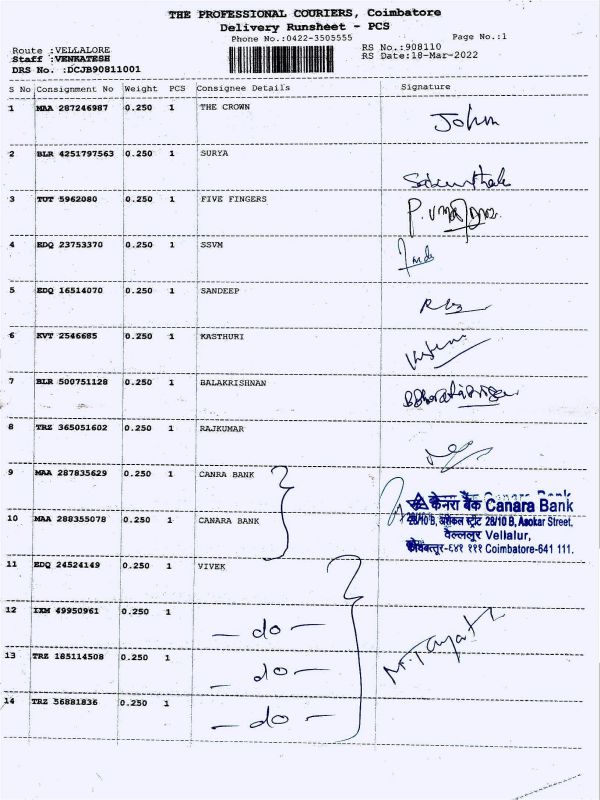 THE PROFESSIONAL COURIERS, Coimbatore
Delivery Runsheet - PCS
Phone No.:0422-3505555 Page No.:1
Route :VELLALORE RS No.:908110
Staff :VENKATESH RS Date:18-Mar-2022
DRS No. :DCJB90811001
S No Consignment No Weight PCS Consignee Details Signature
1 MAA 287246987 0.250 1 THE CROWN John
2 BLR 4251797563 0.250 1 SURYA
3 TUT 5962080 0.250 1 FIVE FINGERS
4 EDQ 23753370 0.250 1 SSVM
5 EDQ 16514070 0.250 1 SANDEEP
6 KVT 2546685 0.250 1 KASTHURI
7 BLR 500751128 0.250 1 BALAKRISHNAN
8 TRZ 365051602 0.250 1 RAJKUMAR
9 MAA 287835629 0.250 1 CANRA BANK
केनरा बैंक Canara Bank
10 MAA 288355078 0.250 1 CANARA BANK
28/10 B, अशोकल स्ट्रीट 28/10 B, Asokar Street,
वेल्ललूर Vellalur,
कोयंबत्तूर-६४१ १११ Coimbatore-641 111.
11 EDQ 24524149 0.250 1 VIVEK
12 IXM 49950961 0.250 1 - do -
13 TRZ 185114508 0.250 1 - do -
14 TRZ 56881836 0.250 1 - do -